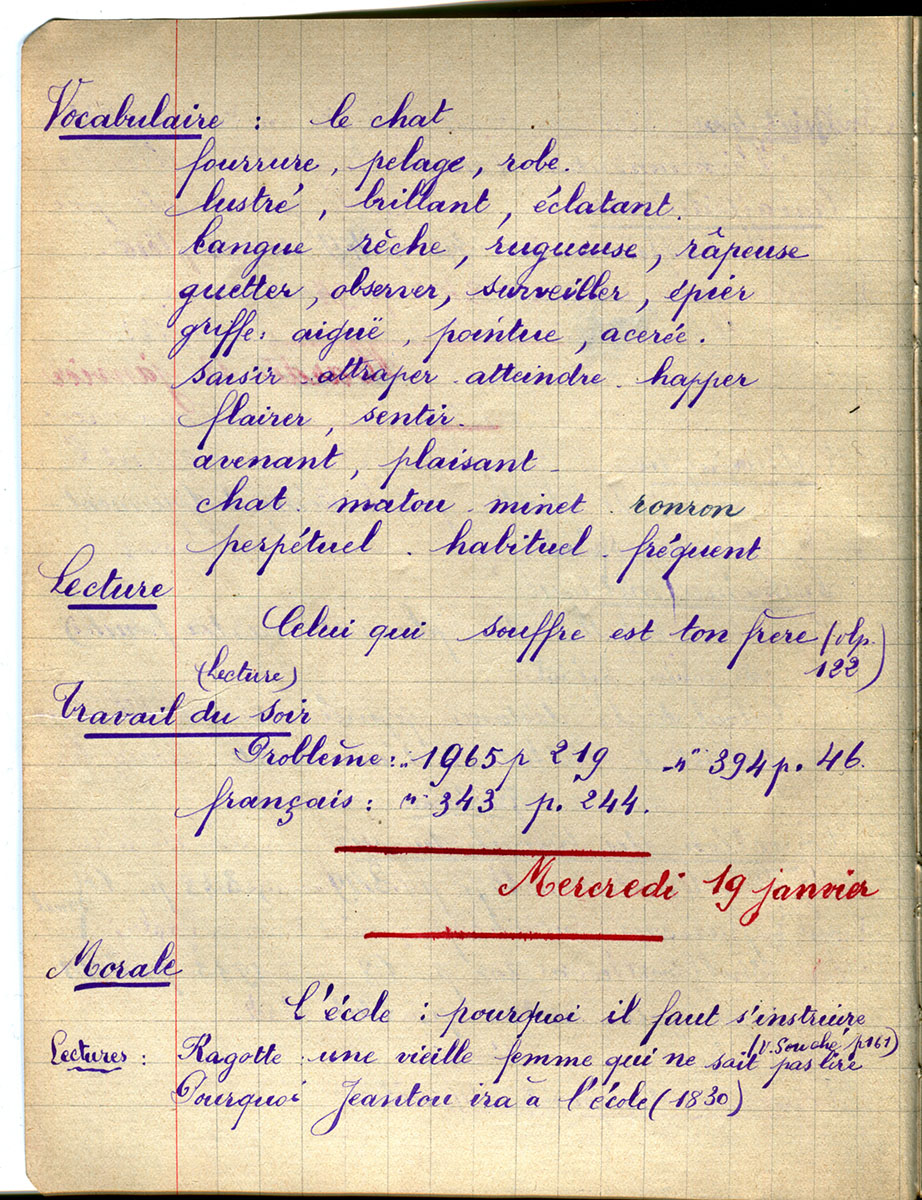 Vocabulaire : le chat
fourrure, pelage, robe.
lustré, brillant, éclatant.
Langue rêche, rugueuse, râpeuse
guetter, observer, surveiller, épier
griffe: aiguë, pointue, acerée.
saisir attraper - atteindre - happer
flairer, sentir.
avenant, plaisant -
chat - matou - minet - ronron
perpétuel - habituel - fréquent
Lecture
Celui qui souffre est ton frère (
122)
(Lecture)
Travail du soir
Problème: n° 1965 p 219 - n° 394 p. 46.
français : n° 343 p. 244.
Mercredi 19 janvier
Morale
L'école : pourquoi il faut s'instruire
(V. Souché p161)
Lectures : Ragotte : une vieille femme qui ne sait pas lire
Pourquoi Jeantou ira à l'école (1830)